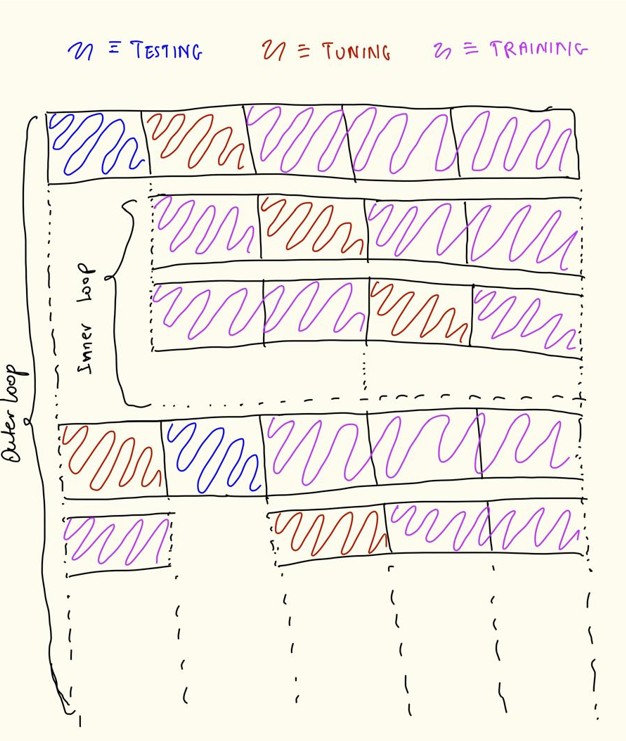 ≡ TESTING ≡ TUNING ≡ TRAINING
Inner Loop
Outer Loop